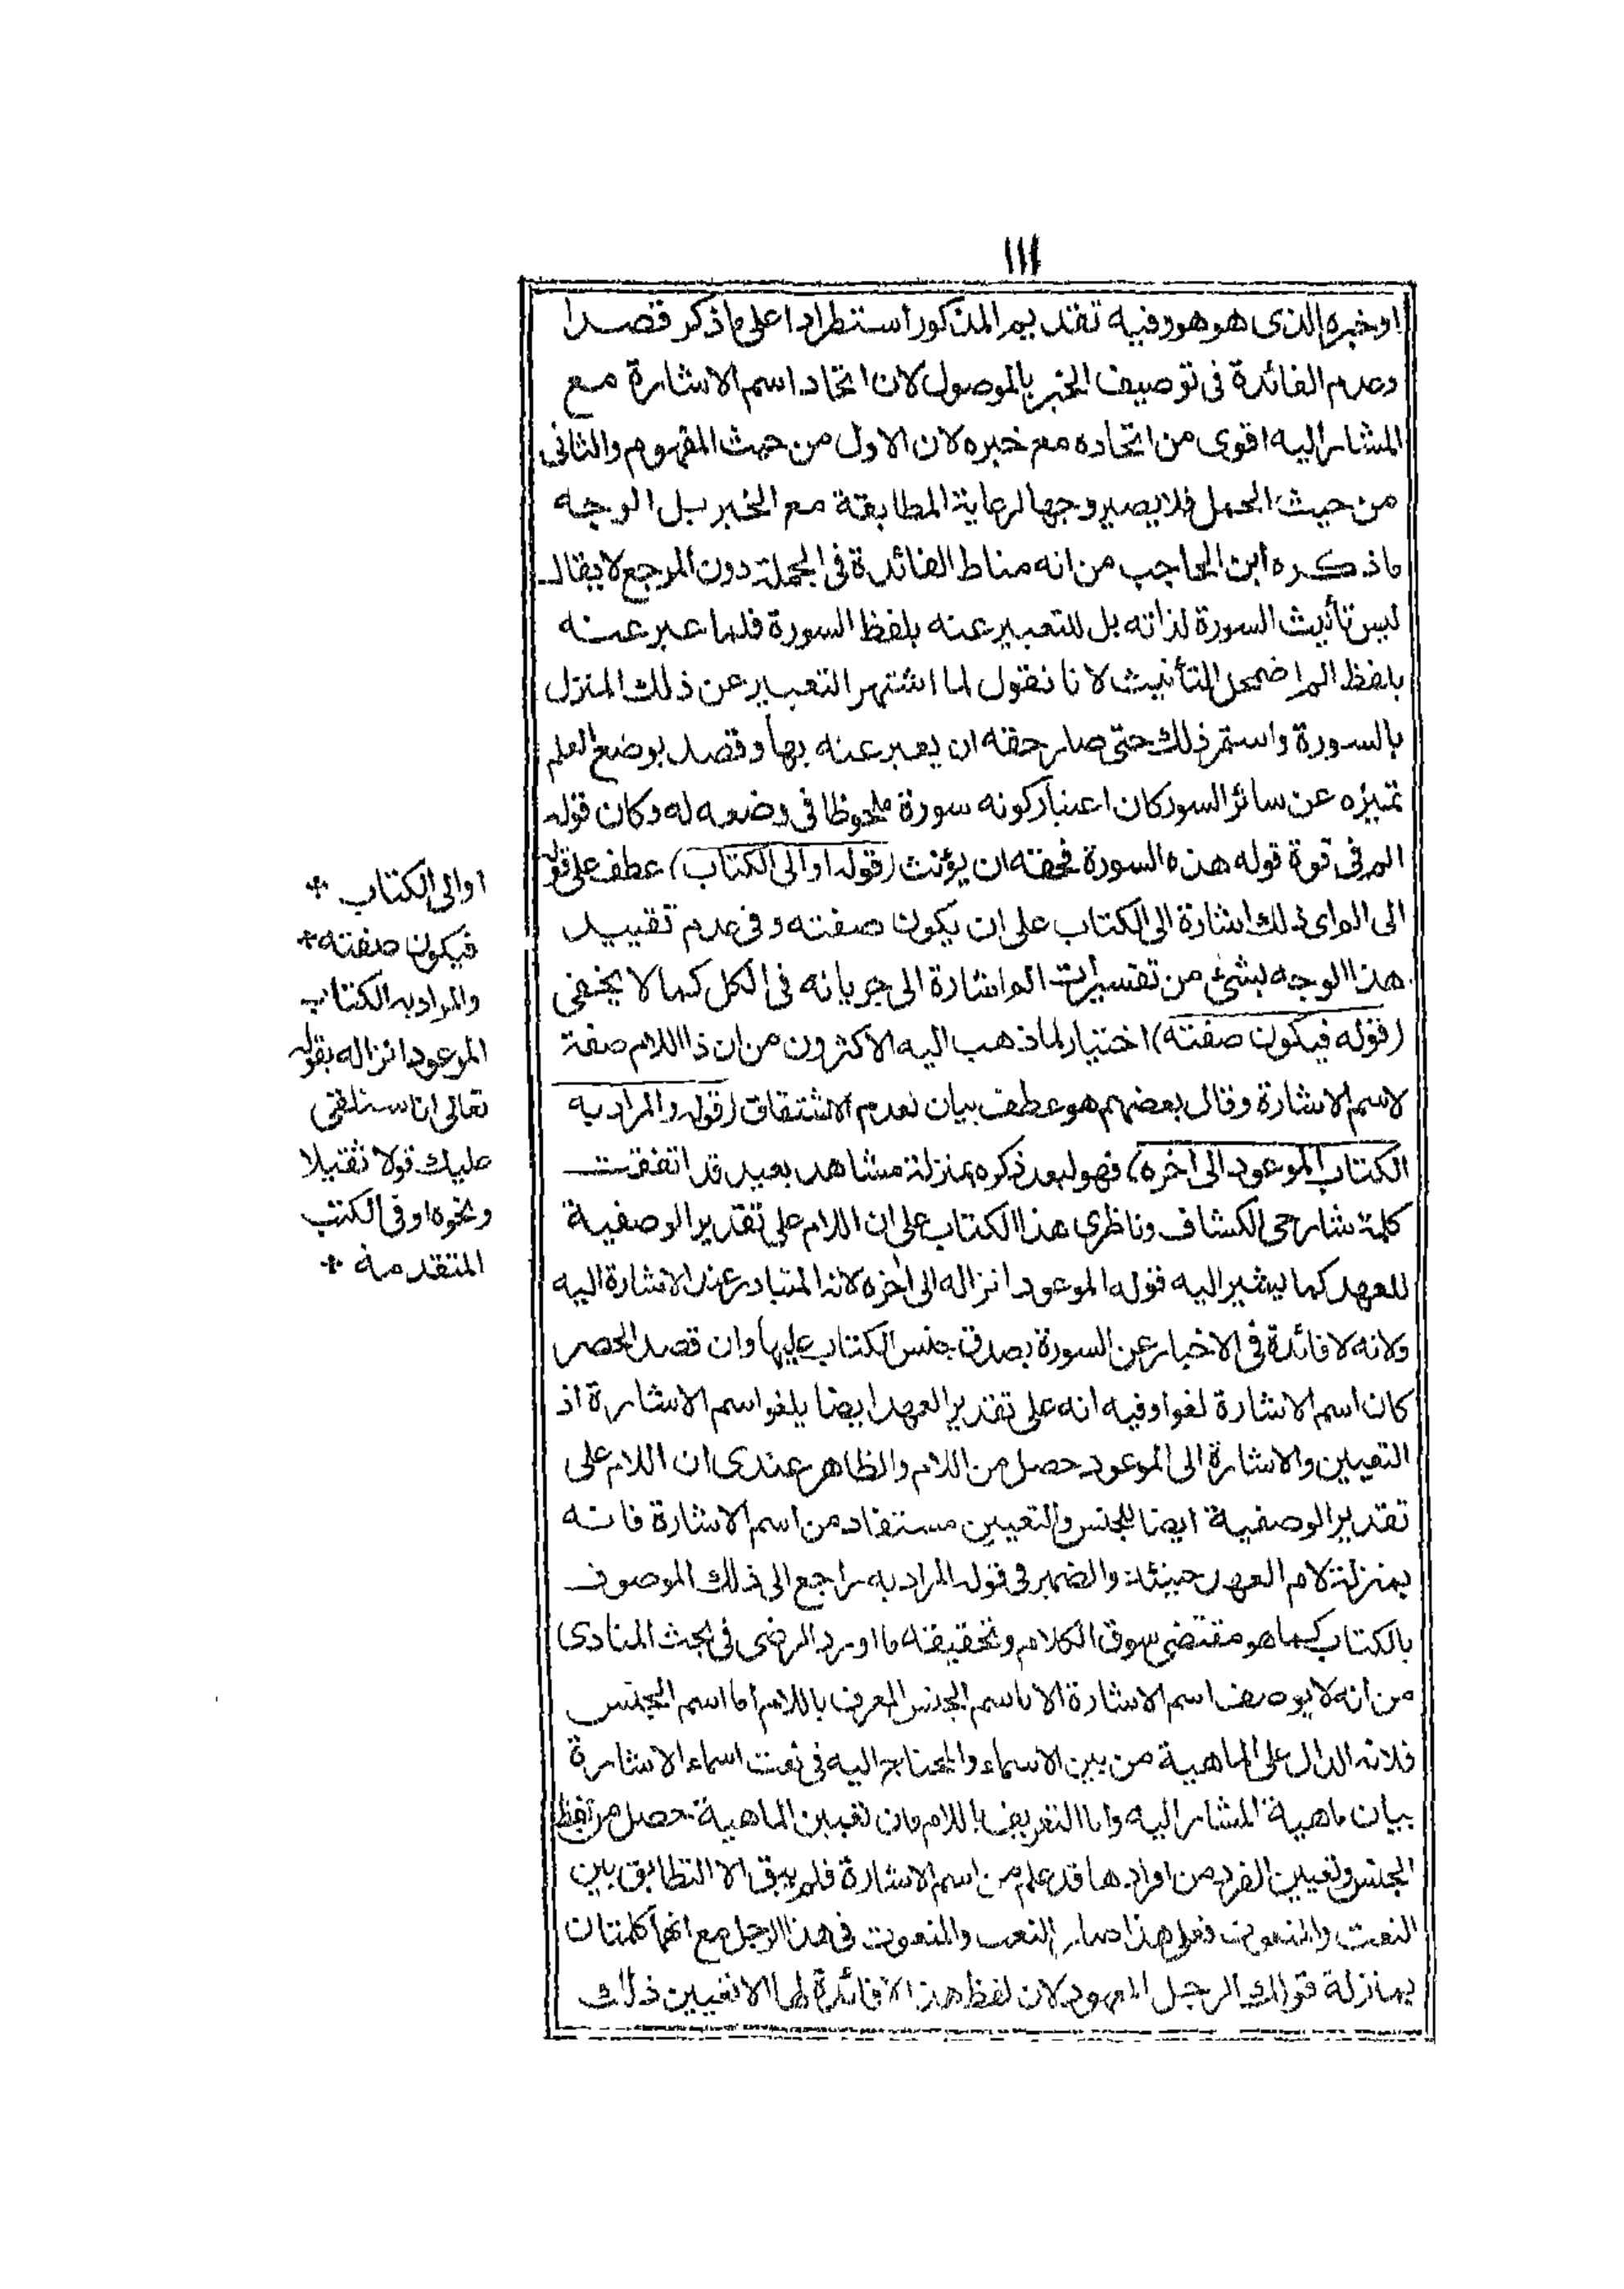 ١١١
اوخبره الذى هو هو وفيه تقديم المذكور استطرادا على ماذكر قصدا
وعدم الفائدة فى توصيف الخبر بالموصول لان اتحاد اسم الاشارة مع
المشار اليه اقوى من اتحاده مع خبره لان الاول من حيث المفهوم والثانى
من حيث الحمل فلا يصير وجها لرعاية المطابقة مع الخبر بل الوجه
ماذكره ابن الحاجب من انه مناط الفائدة فى الجملة دون المرجع لايقال
ليس تأنيث السورة لذاته بل للتعبير عنه بلفظ السورة فلما عبر عنه
بلفظ الم اضمحل التأنيث لانا نقول لما اشتهر التعبير عن ذلك المنزل
بالسورة واستمر ذلك حتى صار حقه ان يعبر عنه بها وقصد بوضع العلم
تميزه عن سائر السور كان اعتبار كونه سورة ملحوظا فى وضعه له وكان قوله
الم فى قوة قوله هذه السورة فحقه ان يؤنث (قوله او الى الكتاب) عطف على قوله
الى الم اى ذلك اشارة الى الكتاب على ان يكون صفته وفى عدم تقييد
هذا الوجه بشئ من تفسيرات الم اشارة الى جريانه فى الكل كما لا يخفى
(قوله فيكون صفته) اختيار لما ذهب اليه الاكثرون من ان ذا اللام صفة
لاسم الاشارة وقال بعضهم هو عطف بيان لعدم الاشتقاق (قوله والمراد به
الكتاب الموعود الى اخره) فهو لبعد ذكره بمنزلة مشاهد بعيد قد اتفقت
كلمة شارحى الكشاف وناظرى هذا الكتاب على ان اللام على تقدير الوصفية
للعهد كما يشير اليه قوله الموعود انزاله الى اخره لانه المتبادر عند الاشارة اليه
ولانه لا فائدة فى الاخبار عن السورة بصدق جنس الكتاب عليها وان قصد الحصر
كان اسم الاشارة لغوا وفيه انه على تقدير العهد ايضا يلغو اسم الاشارة اذ
التعيين والاشارة الى الموعود حصل من اللام والظاهر عندى ان اللام على
تقدير الوصفية ايضا للجنس والتعيين مستفاد من اسم الاشارة فانه
بمنزلة لام العهد حينئذ والضمير فى قوله المراد به راجع الى ذلك الموصوف
بالكتاب كما هو مقتضى سوق الكلام وتحقيقه ما اورد الرضى فى بحث المنادى
من انه لا يوصف اسم الاشارة الا باسم الجنس المعرف باللام اما اسم الجنس
فلانه الدال على الماهية من بين الاسماء والمحتاج اليه فى نعت اسماء الاشارة
بيان ماهية المشار اليه واما التعريف باللام فان تعيين الماهية حصل من لفظ
الجنس وتعيين الفرد من افرادها قد علم من اسم الاشارة فلم يبق الا التطابق بين
النعت والمنعوت فعلى هذا صار النعت والمنعوت فى هذا الرجل مع انهما كلمتان
بمنزلة قولك الرجل المعهود لان لفظ هذا لا فائدة لها الا تعيين ذلك
اوالى الكتاب *
فيكون صفته *
والمراد به الكتاب
الموعود انزاله بقوله
تعالى انا سنلقى
عليك قولا ثقيلا
ونحوه او فى الكتب
المتقدمة *